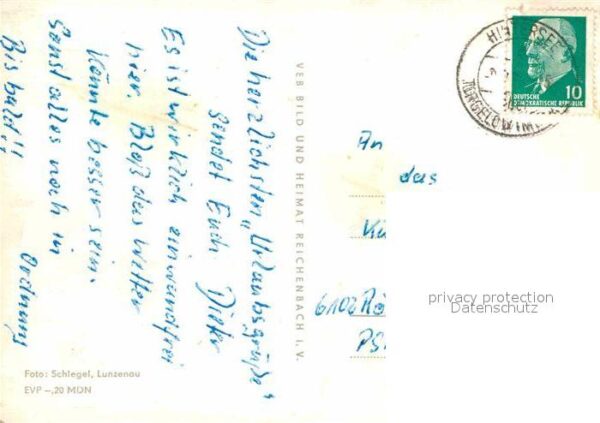 Die herzlichsten „Urlaubsgrüße"
sendet Euch Dieter
Es ist wirklich einwandfrei
hier. Bloß das Wetter
könnte besser sein.
Sonst alles noch in
Ordnung
Bis bald!!
VEB BILD UND HEIMAT REICHENBACH I. V.
Foto: Schlegel, Lunzenau
EVP –,20 MDN
10
DEUTSCHE
DEMOKRATISCHE REPUBLIK
An
das
6102 Rö
PS
privacy protection
Datenschutz